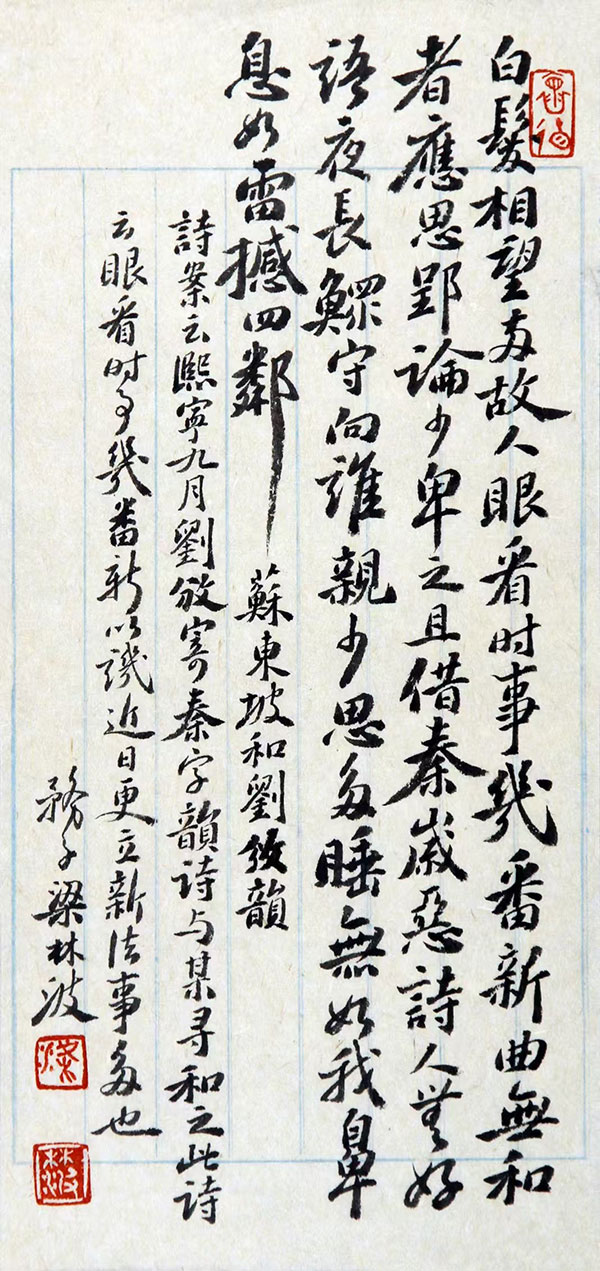 白髮相望兩故人眼看时事幾番新曲無和
者應思郢論少卑之且借秦歲惡詩人無好
語夜長鰥守向誰親少思多睡無如我鼻
息如雷撼四鄰
蘇東坡和劉攽韻
詩案云熙寧九月劉攽寄秦字韻詩与某寻和之此詩
云眼看时事幾番新以譏近日更立新法事多也
務子梁林波
梁
林波